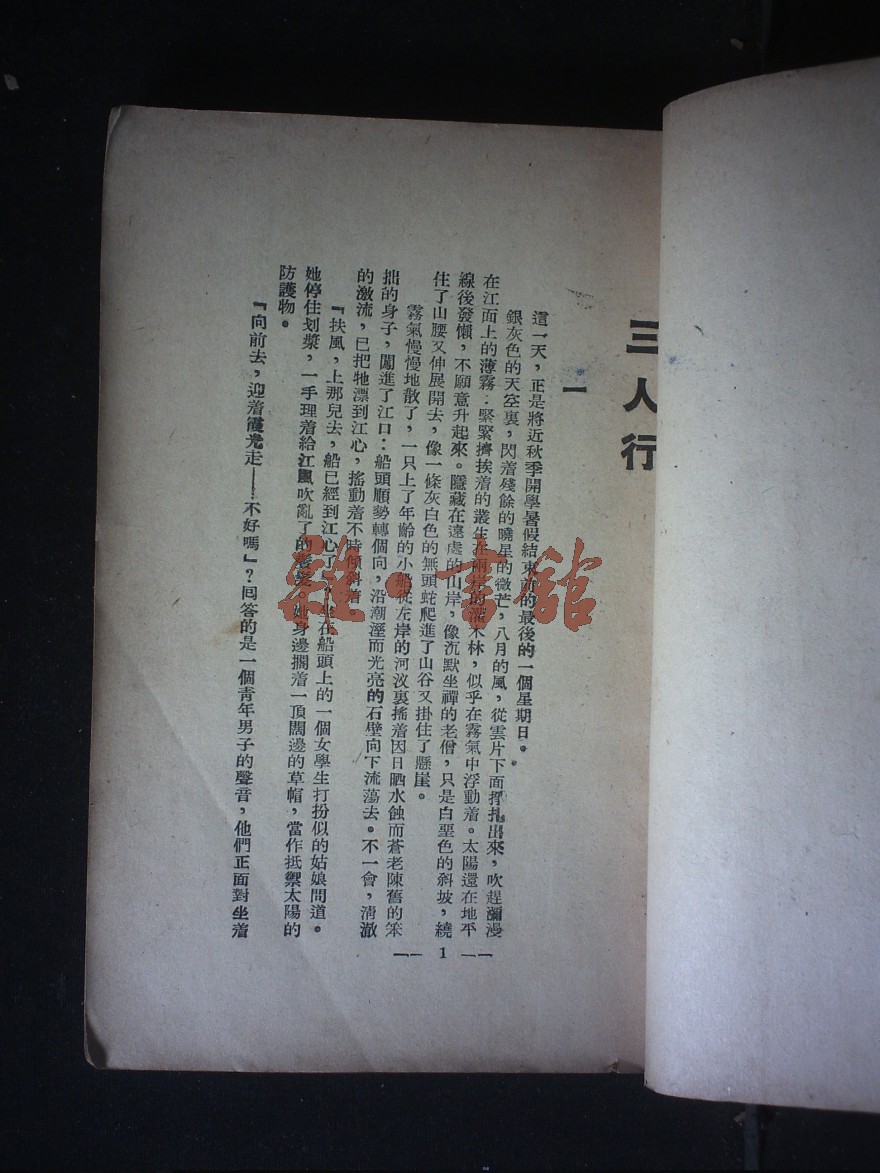 三人行
一
這一天，正是將近秋季開學暑假結束前的最後的一個星期日。
銀灰色的天空裏，閃着殘餘的曉星的微芒，八月的風，從雲片下面掙扎出來，吹趕瀰漫
在江面上的薄霧；緊緊擠挨着的叢生在兩岸的灌木林，似乎在霧氣中浮動着。太陽還在地平
線後發懶，不願意升起來。隱藏在遠處的山岸，像沉默坐禪的老僧，只是白堊色的斜坡，繞
住了山腰又伸展開去，像一條灰白色的無頭蛇爬進了山谷又掛住了懸崖。
霧氣慢慢地散了，一只上了年齡的小船從左岸的河汊裏搖着因日晒水蝕而蒼老陳舊的笨
拙的身子，闖進了江口；船頭順勢轉個向，沿潮溼而光亮的石壁向下流蕩去。不一會，清澈
的激流，已把牠漂到江心，搖動着不時傾斜着
『扶風，上那兒去，船已經到江心了坐在船頭上的一個女學生打扮似的姑娘問道。
她停住划漿，一手理着給江風吹亂了的髮。她身邊擱着一頂闊邊的草帽，當作抵禦太陽的
防護物。
『向前去，迎着霞光走——不好嗎』？回答的是一個青年男子的聲音，他們正面對坐着
— 1 —
雜·書館